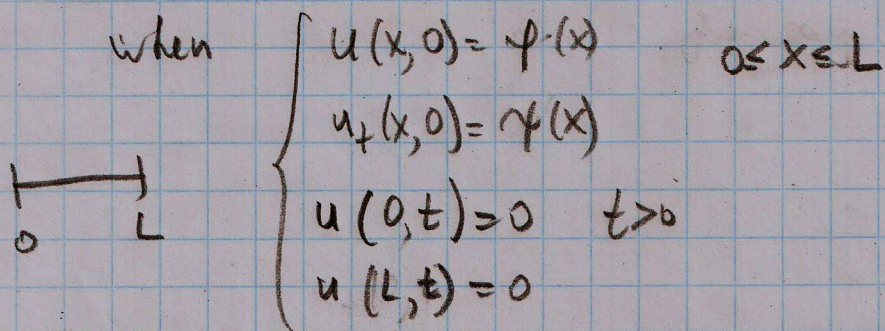 when u(x,0)= φ(x) 0≤x≤L
u_t(x,0)= ψ(x)
u(0,t)=0 t>0
0 L
u(L,t)=0